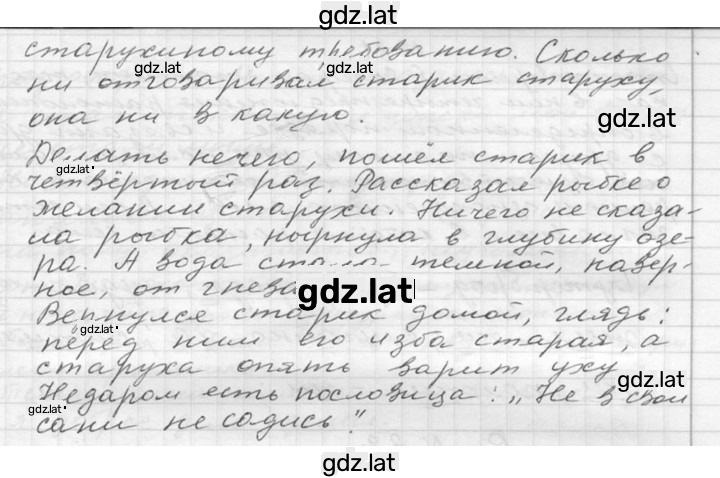 gdz.lat
старухиному требованию. Сколько
gdz.lat
gdz.lat
ни отговаривал старик старуху,
она ни в какую.
gdz.lat
Делать нечего, пошёл старик в
gdz.lat
четвёртый раз. Рассказал рыбке о
желании старухи. Ничего не сказа-
ла рыбка, нырнула в глубину озе-
ра. А вода стала темной, навер-
ное, от гнева
gdz.lat
Вернулся старик домой, глядь:
gdz.lat
перед ним его изба старая, а
старуха опять варит уху
gdz.lat
Недаром есть пословица: „Не в свои
gdz.lat
сани не садись"
gdz.lat